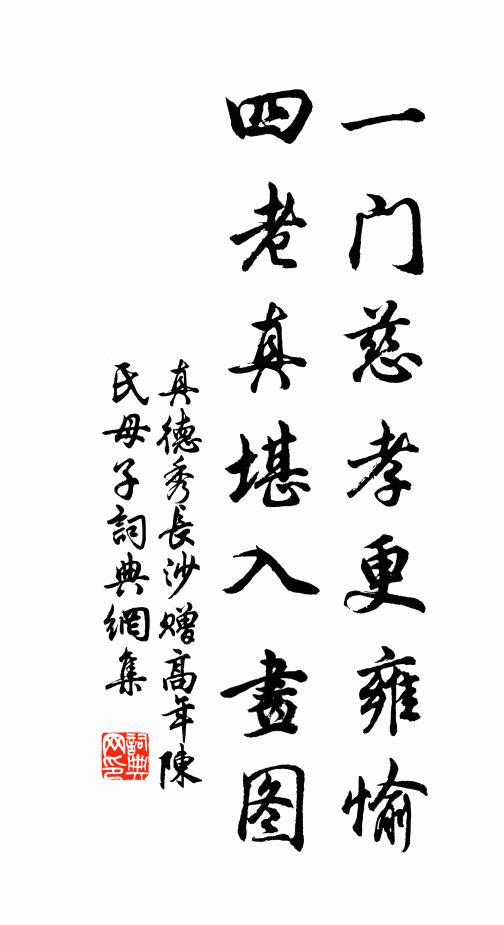 一门慈孝更雍愉
四老真堪入畫图
真德秀長沙赠高年陳
氏母子詞典網集
詞典网印